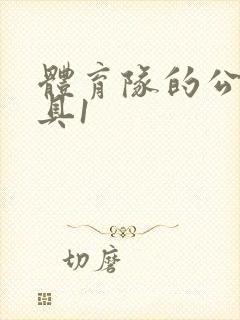 體育隊的公
具1
切磨